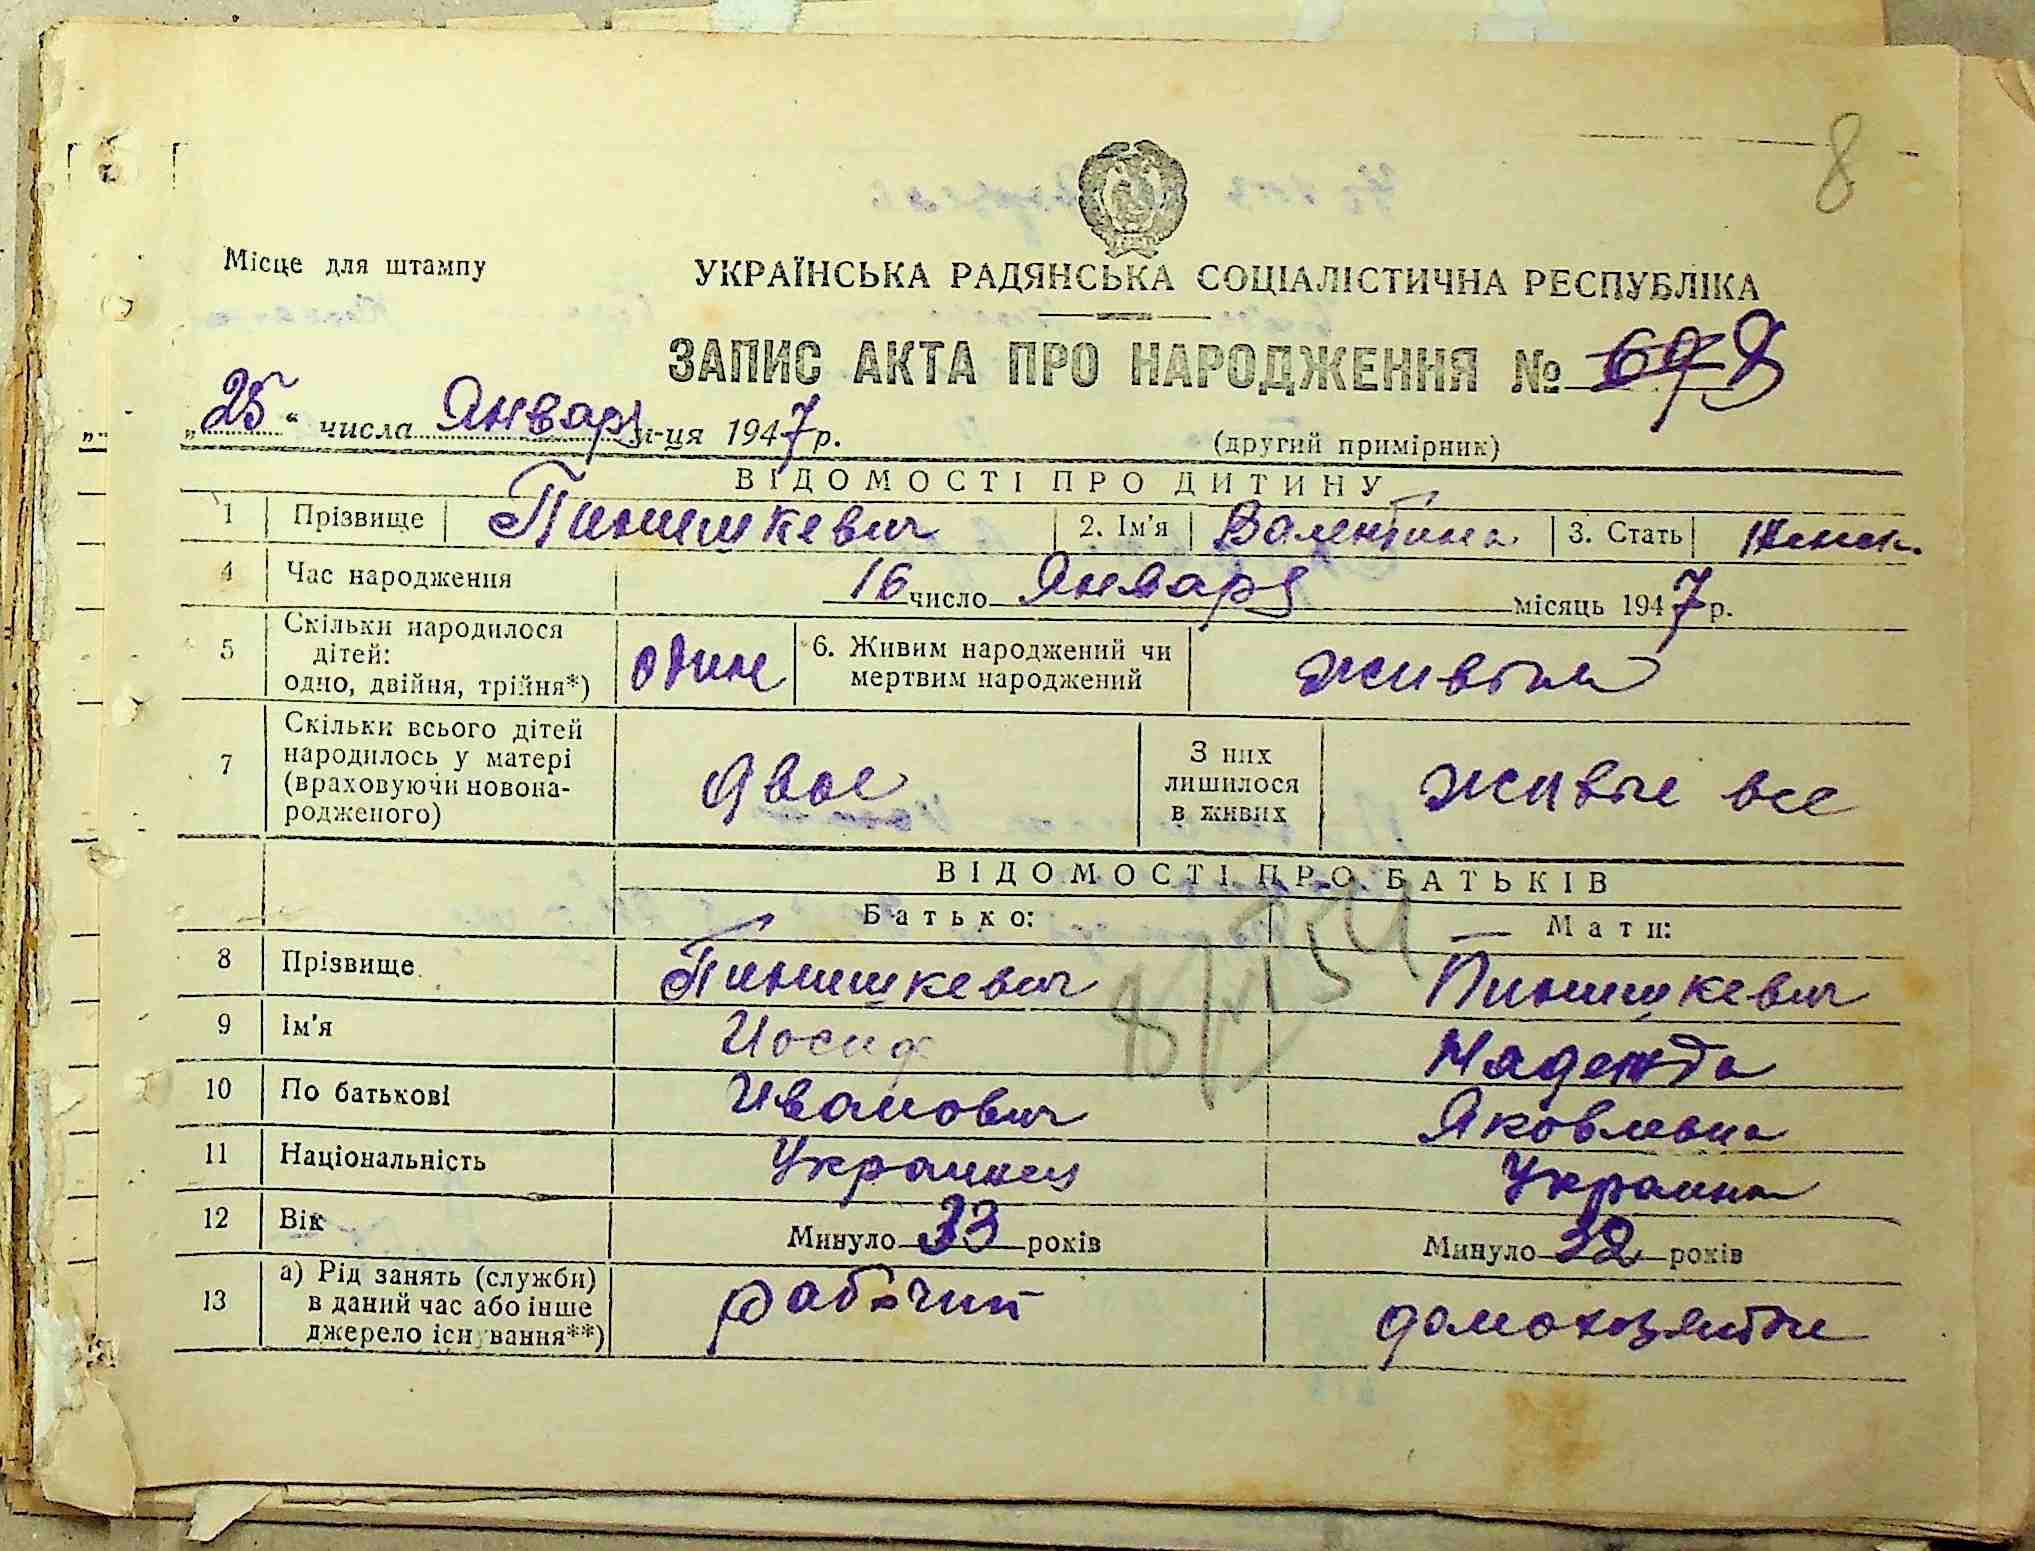 8
Місце для штампу
УКРАЇНСЬКА РАДЯНСЬКА СОЦІАЛІСТИЧНА РЕСПУБЛІКА
ЗАПИС АКТА ПРО НАРОДЖЕННЯ № 8
„25“ числа Января м-ця 1947 р.
(другий примірник)
ВІДОМОСТІ ПРО ДИТИНУ
1 Прізвище Пинишкевич 2. Ім'я Валентина 3. Стать Женск.
4 Час народження 16 число Января місяць 1947 р.
5 Скільки народилося дітей: одно, двійня, трійня*) один 6. Живим народжений чи мертвим народжений живым
7 Скільки всього дітей народилось у матері (враховуючи новонародженого) двое З них лишилося в живих живые все
ВІДОМОСТІ ПРО БАТЬКІВ
Батько: Мати:
8 Прізвище Пинишкевич Пинишкевич
9 Ім'я Иосиф Надежда
10 По батькові Иванович Яковлевна
11 Національність Украинец Украинка
12 Вік Минуло 33 років Минуло 32 років
13 а) Рід занять (служби) в даний час або інше джерело існування**) рабочий домохозяйки